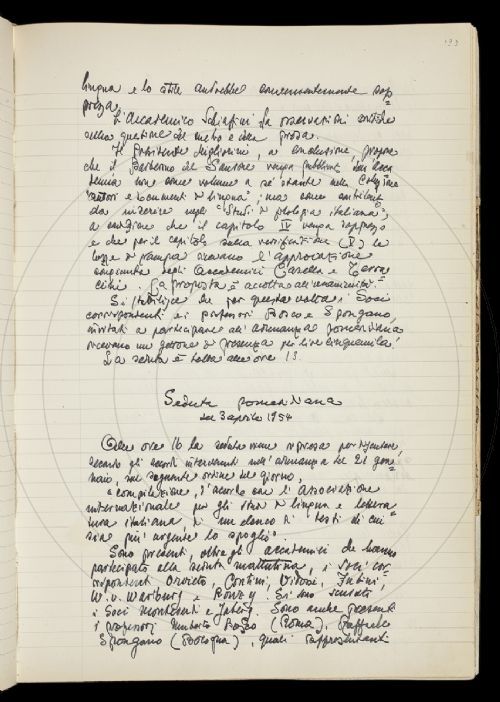 lingua e lo stile andrebbe convenientemente sop=
pressa.
L'Accademico Schiaffini fa osservazioni critiche
sulla questione del metro e della prosa.
Il Presidente Migliorini, a conclusione, propone
che il Barberino del Santore venga pubblicato dall'Acca
demia non come volume a sé stante nella Collezione
"Autori e documenti di lingua", ma come contributo
da inserire negli "Studi di filologia italiana",
a condizione che il capitolo IV venga soppresso
e che per il capitolo sulla versificazione (V) le
bozze di stampa ricevano l'approvazione
congiunta degli Accademici Casella e Terra
cini. La proposta è accolta all'unanimità.
Si stabilisce che per questa volta i Soci
corrispondenti e i professori Bosco e Spongano,
invitati a partecipare all'adunanza pomeridiana
ricevano un gettone di presenza per lire cinquemila.
La seduta è tolta alle ore 13.
Seduta pomeridiana
del 3 aprile 1954
Alle ore 16 la seduta viene ripresa per discutere,
secondo gli accordi intervenuti nell'adunanza del 21 gen=
naio, sul seguente ordine del giorno,
"compilazione, d'accordo con l'Associazione
internazionale per gli studi di lingua e lettera=
tura italiana, di un elenco di testi di cui
sia più urgente lo spoglio".
Sono presenti, oltre gli accademici che hanno
partecipato alla seduta mattutina, i Soci cor=
rispondenti Orvieto, Contini, Vidossi, Fubini,
W. v. Wartburg e Roncy. Si sono scusati
i Soci Monteverdi e Jaberg. Sono anche presenti
i professori Umberto Bosco (Roma), Raffaele
Spongano (Bologna), quali rappresentanti